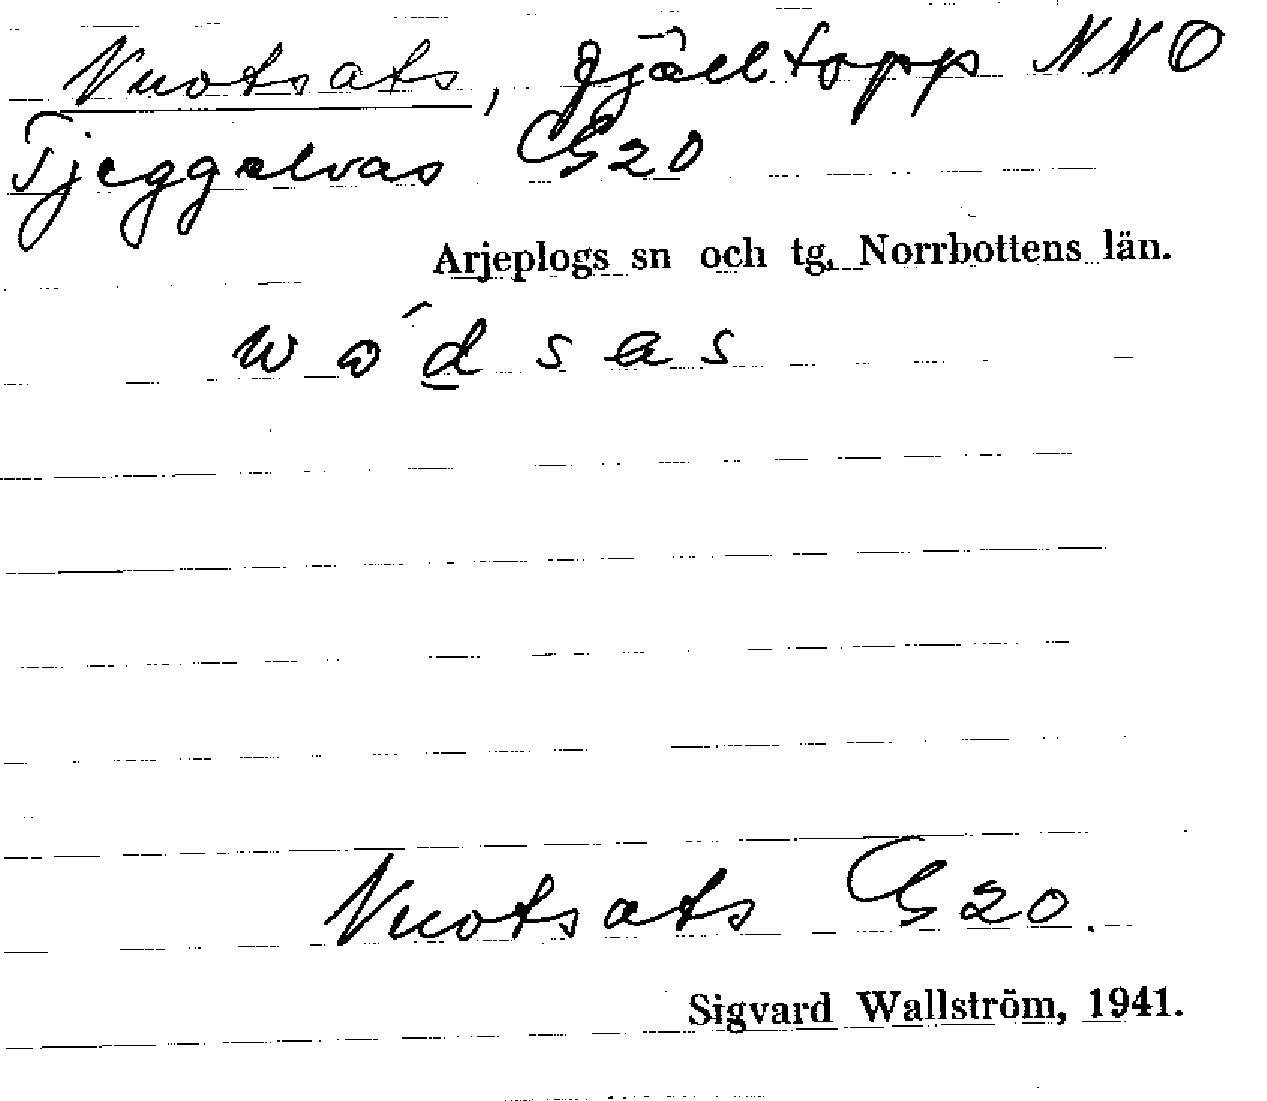 Vuotsats, fjälltopp NNO
Tjeggelvas G20
Arjeplogs sn och tg, Norrbottens län.
Vuotsats G20.
Sigvard Wallström, 1941.